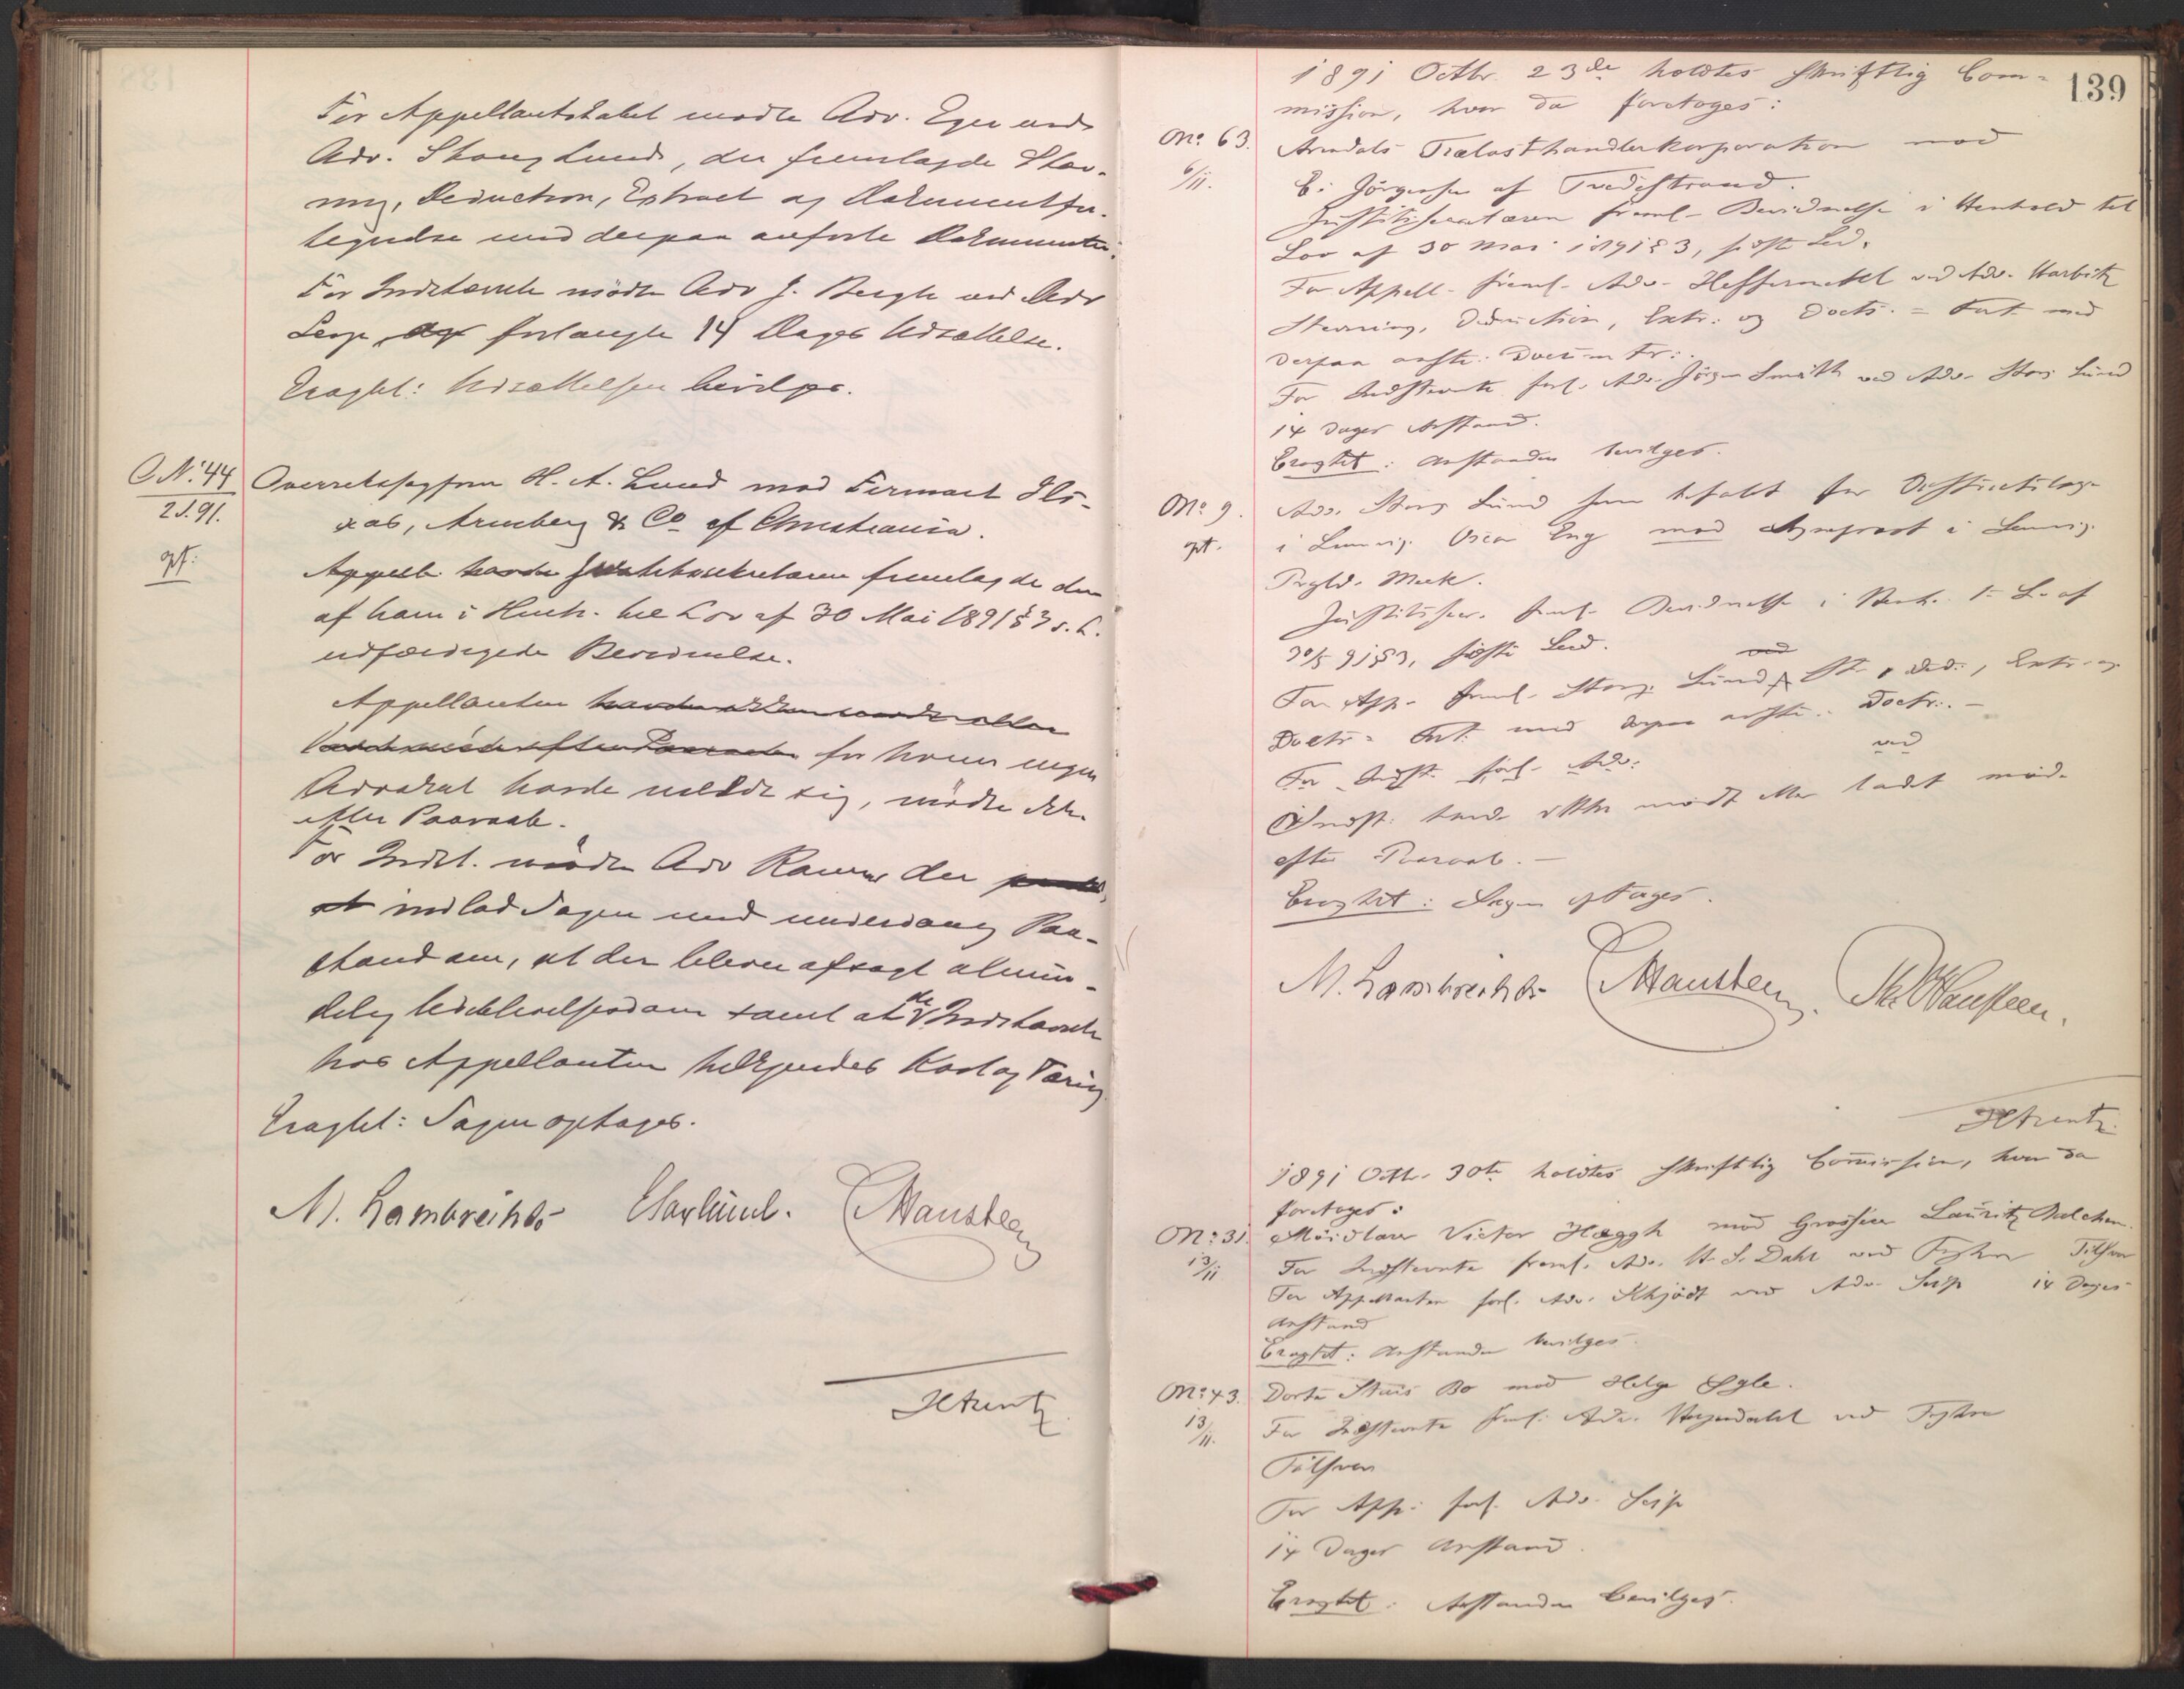 For Appellantskabet mødte Adv. Eger ved
Adv. Stang Lund, der fremlagde Stæv-
ning, Deduction, Extract og Dokumentfor-
tegnelse med derpaa anførte Dokumenter.
For Indstævnte mødte Adv J. Bergh ved Adv
Seip, forlangte 14 Dages Udsættelse.
Eragtet: Udsættelsen bevilges.
C N: 44
2 S. 91.
opt:
Overretssagfører H. A. Lund mod Firmaet
Armberg & Co af Christiania.
Appell. havde Justitssekretæren fremlagde den
af ham i Henh. til Lov af 30 Mai 1891 § 3 s. L.
udfærdigede Bevidnelse.
Appellanten havde ikke mødt eller
ladet møde efter Paaraab for hvem ingen
Advokat havde meldt sig, mødte ikke
efter Paaraab.
For Indst. mødte Adv Ravn der
at indlod Sagen med underdanig Paa-
stand om, at der bliver afsagt almin-
delig Udeblivelsesdom samt at de Indstævnte
hos Appellanten tilkjendes Kost og Tæring.
Eragtet: Sagen optages.
N. Lambrechts EHansteen
139
1891 Octbr. 23de holdtes skriftlig Com-
mission, hvor da foretoges:
No 63.
6/11.
Arendals Trælasthandlerkorporation mod
C. Jörgensen af Tvedestrand.
Justitssecretæren freml. Bevidnelse i Henhold til
Lov af 30 Mai 1891 § 3, sidste Led.
For Appell. freml. Adv. Heffermehl ved Adv. Harbitz
Stævning, Deduction, Extr. og Docts. = Fort. med
derpaa anfte. Docum tr:.
For Indstevnte forl. Adv. Jörgen Smith ved Adv. Stang Lund
14 dages Anstand.
Eragtet: Anstanden bevilges.
No 9.
opt.
Adv. Stang Lund som befalt for
i Lemvig Oscar Eng mod i Lemvig
Justitssecr. freml. Bevidnelse i Henh. t. L. af
30/5 91 § 3, sidste Led.
For App. freml. Stang Lund ved St., Ded., Extr. og
Doctr = Fort. med derpaa anfte. Doctr. -
For Indst. forl. Adv: ved
Indst. havde ikke mødt eller ladt møde
efter Paaraab. -
Eragtet: Sagen optages.
N. Lambrechts EHansteen. Hansteen.
1891 Octb. 30te holdtes skriftlig Commission, hvor da
foretoges:
No 31.
13/11
Victor Hæggh mod Grosserer Lauritz Balchen.
For Indstevnte freml. Adv. H. S. Dahl ved
For Appellanten forl. Adv. Skjødt ved Adv. Seip 14 Dages
Anstand
Eragtet: Anstanden bevilges.
No 43.
13/11.
Dorte Bo mod Helge
For Indstevnte freml. Adv. ved
For App. forl. Adv. Seip
14 Dages Anstand.
Eragtet: Anstanden bevilges.